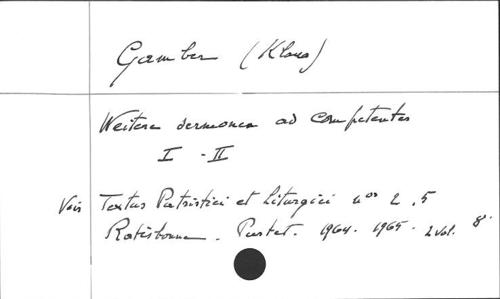 Gamber (Klaus)
Weitere sermones ad competentes
I - II
Vois Textus Patristici et Liturgici nos 2, 5
Ratisbonne. Pustet. 1964. 1965. 2 vol. 8°